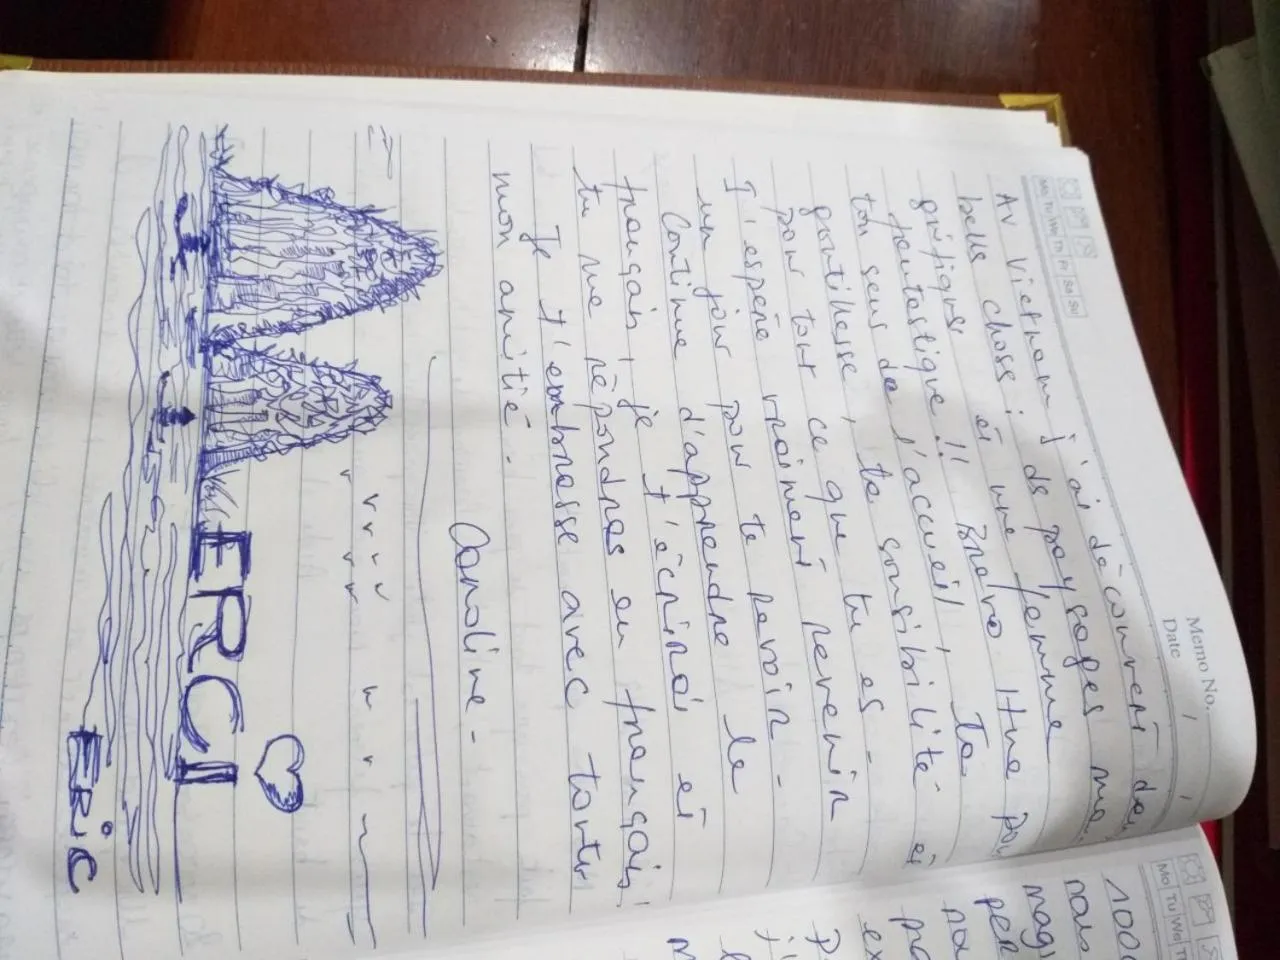 Memo No.
Date / /
Mo Tu We Th Fr Sa Su
Au Vietnam j'ai découvert deux
belle choses : de paysages ma
gnifiques et une femme
fantastique !! Bravo Hue pour
ton sens de l'accueil, ta
gentillesse, ta sensibilité et
pour tout ce que tu es -
J'espère vraiment revenir
un jour pour te revoir -
Continue d'apprendre le
français, je t'écrirai et
tu me répondras en français
Je t'embrasse avec toute
mon amitié.
Caroline -
MERCI
Eric
Mo Tu We Th
1000